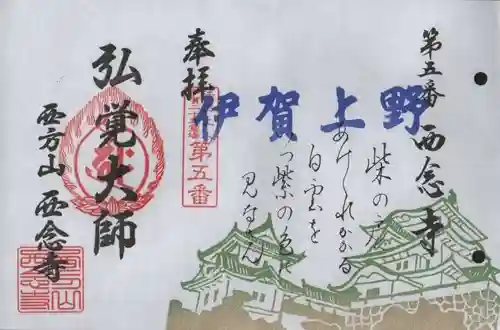 第五番 西念寺
柴の戸に
あけくれかかる
白雲を
いつ紫の色に
見なさん
伊賀上野
奉拝
第五番
弘覚大師
西方山 西念寺